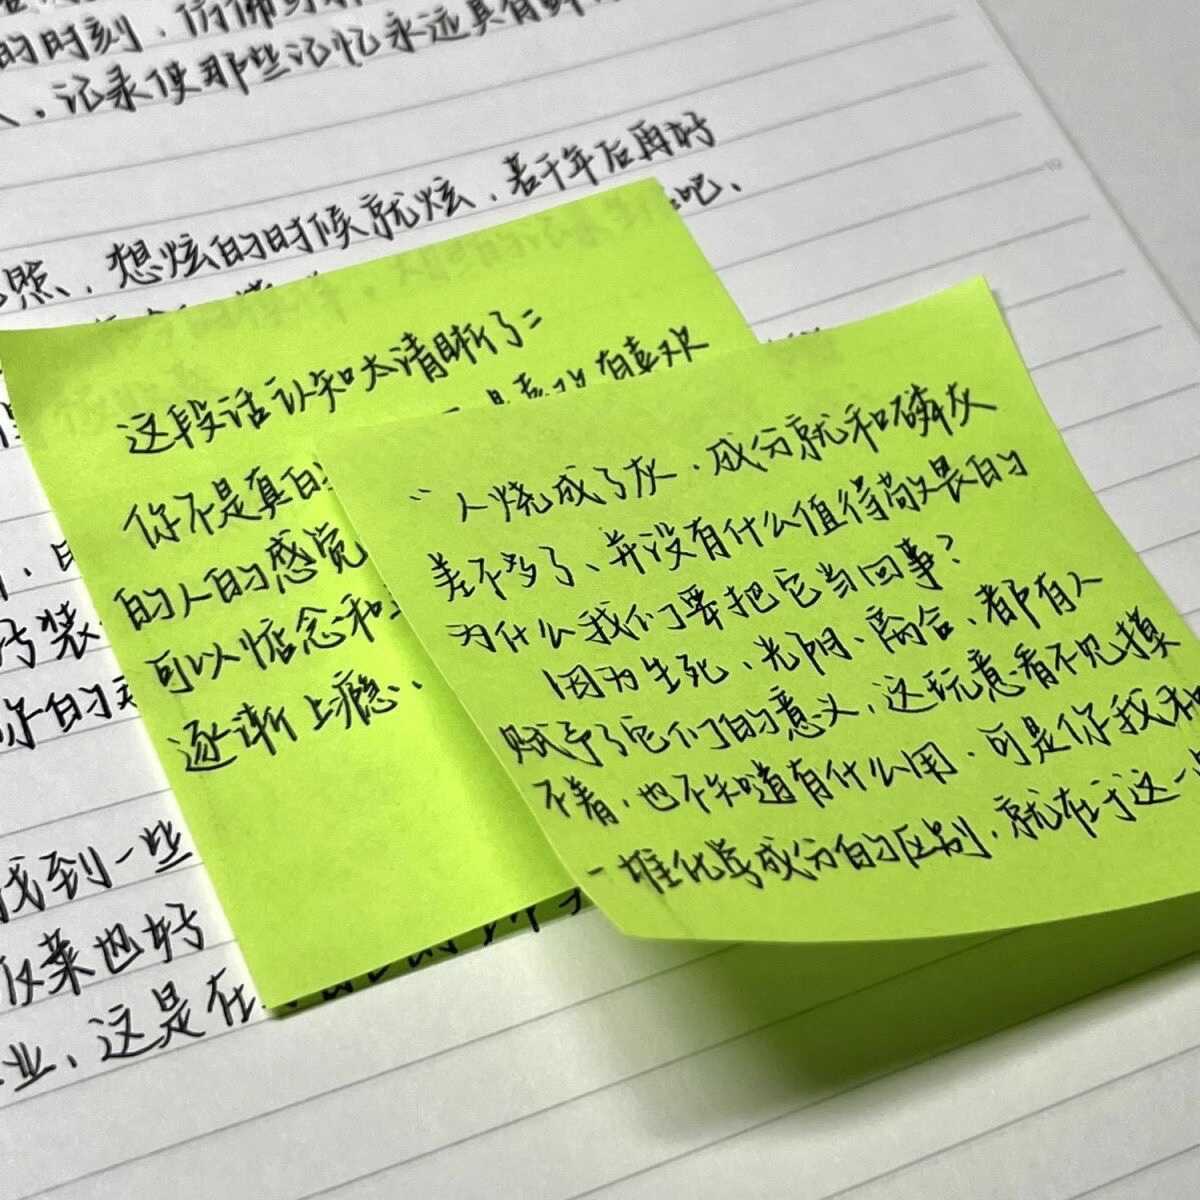 的时刻，仿佛
，记录使那些记忆永远具有鲜
若干年后再好
照，想炫的时候就炫，
吧、
这段话认知太清晰了：
喜欢
你不是真的
的人的感觉
可以惦念和
逐渐上瘾、
“人烧成了灰，成分就和磷灰
差不多了、并没有什么值得敬畏的
为什么我们要把它当回事？
因为生死、光阴、离合、都有人
赋予了它们的意义，这玩意看不见摸
不着，也不知道有什么用，可是你我和
一堆化学成分的区别，就在于这一
装
你的
找到一些
仅菜也好
业、这是在